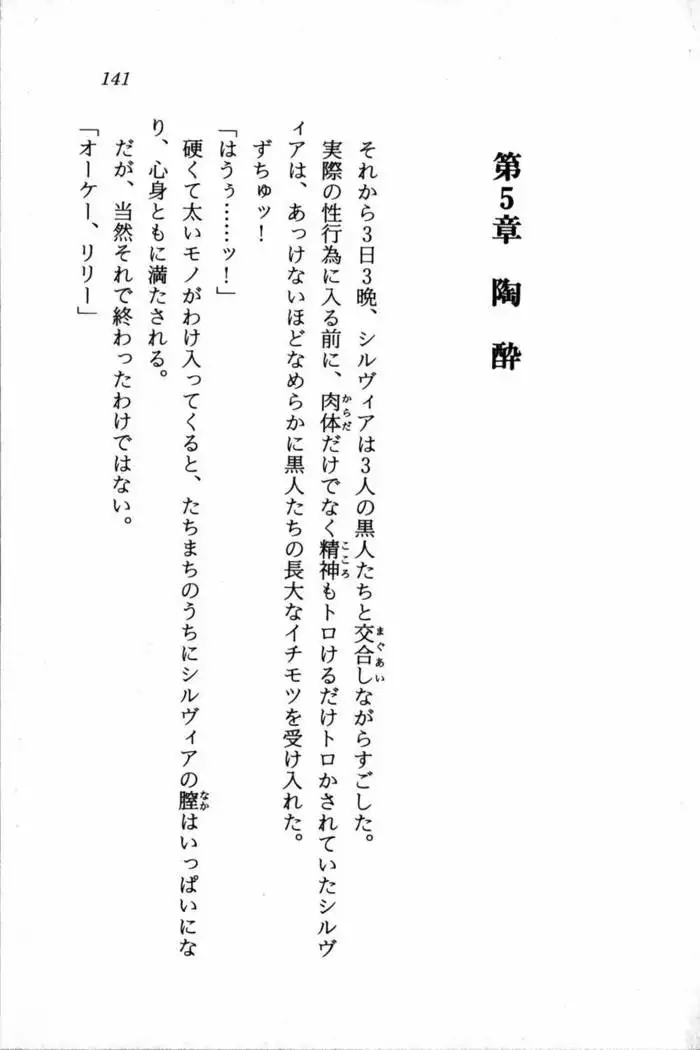 141
第5章 陶酔
それから3日3晩、シルヴィアは3人の黒人たちと交合しながらすごした。
まぐあい
実際の性行為に入る前に、肉体だけでなく精神もトロけるだけトロかされていたシルヴ
からだ こころ
ィアは、あっけないほどなめらかに黒人たちの長大なイチモツを受け入れた。
ずちゅッ！
「はうぅ……ッ！」
硬くて太いモノがわけ入ってくると、たちまちのうちにシルヴィアの膣はいっぱいにな
なか
り、心身ともに満たされる。
だが、当然それで終わったわけではない。
「オーケー、リリー」